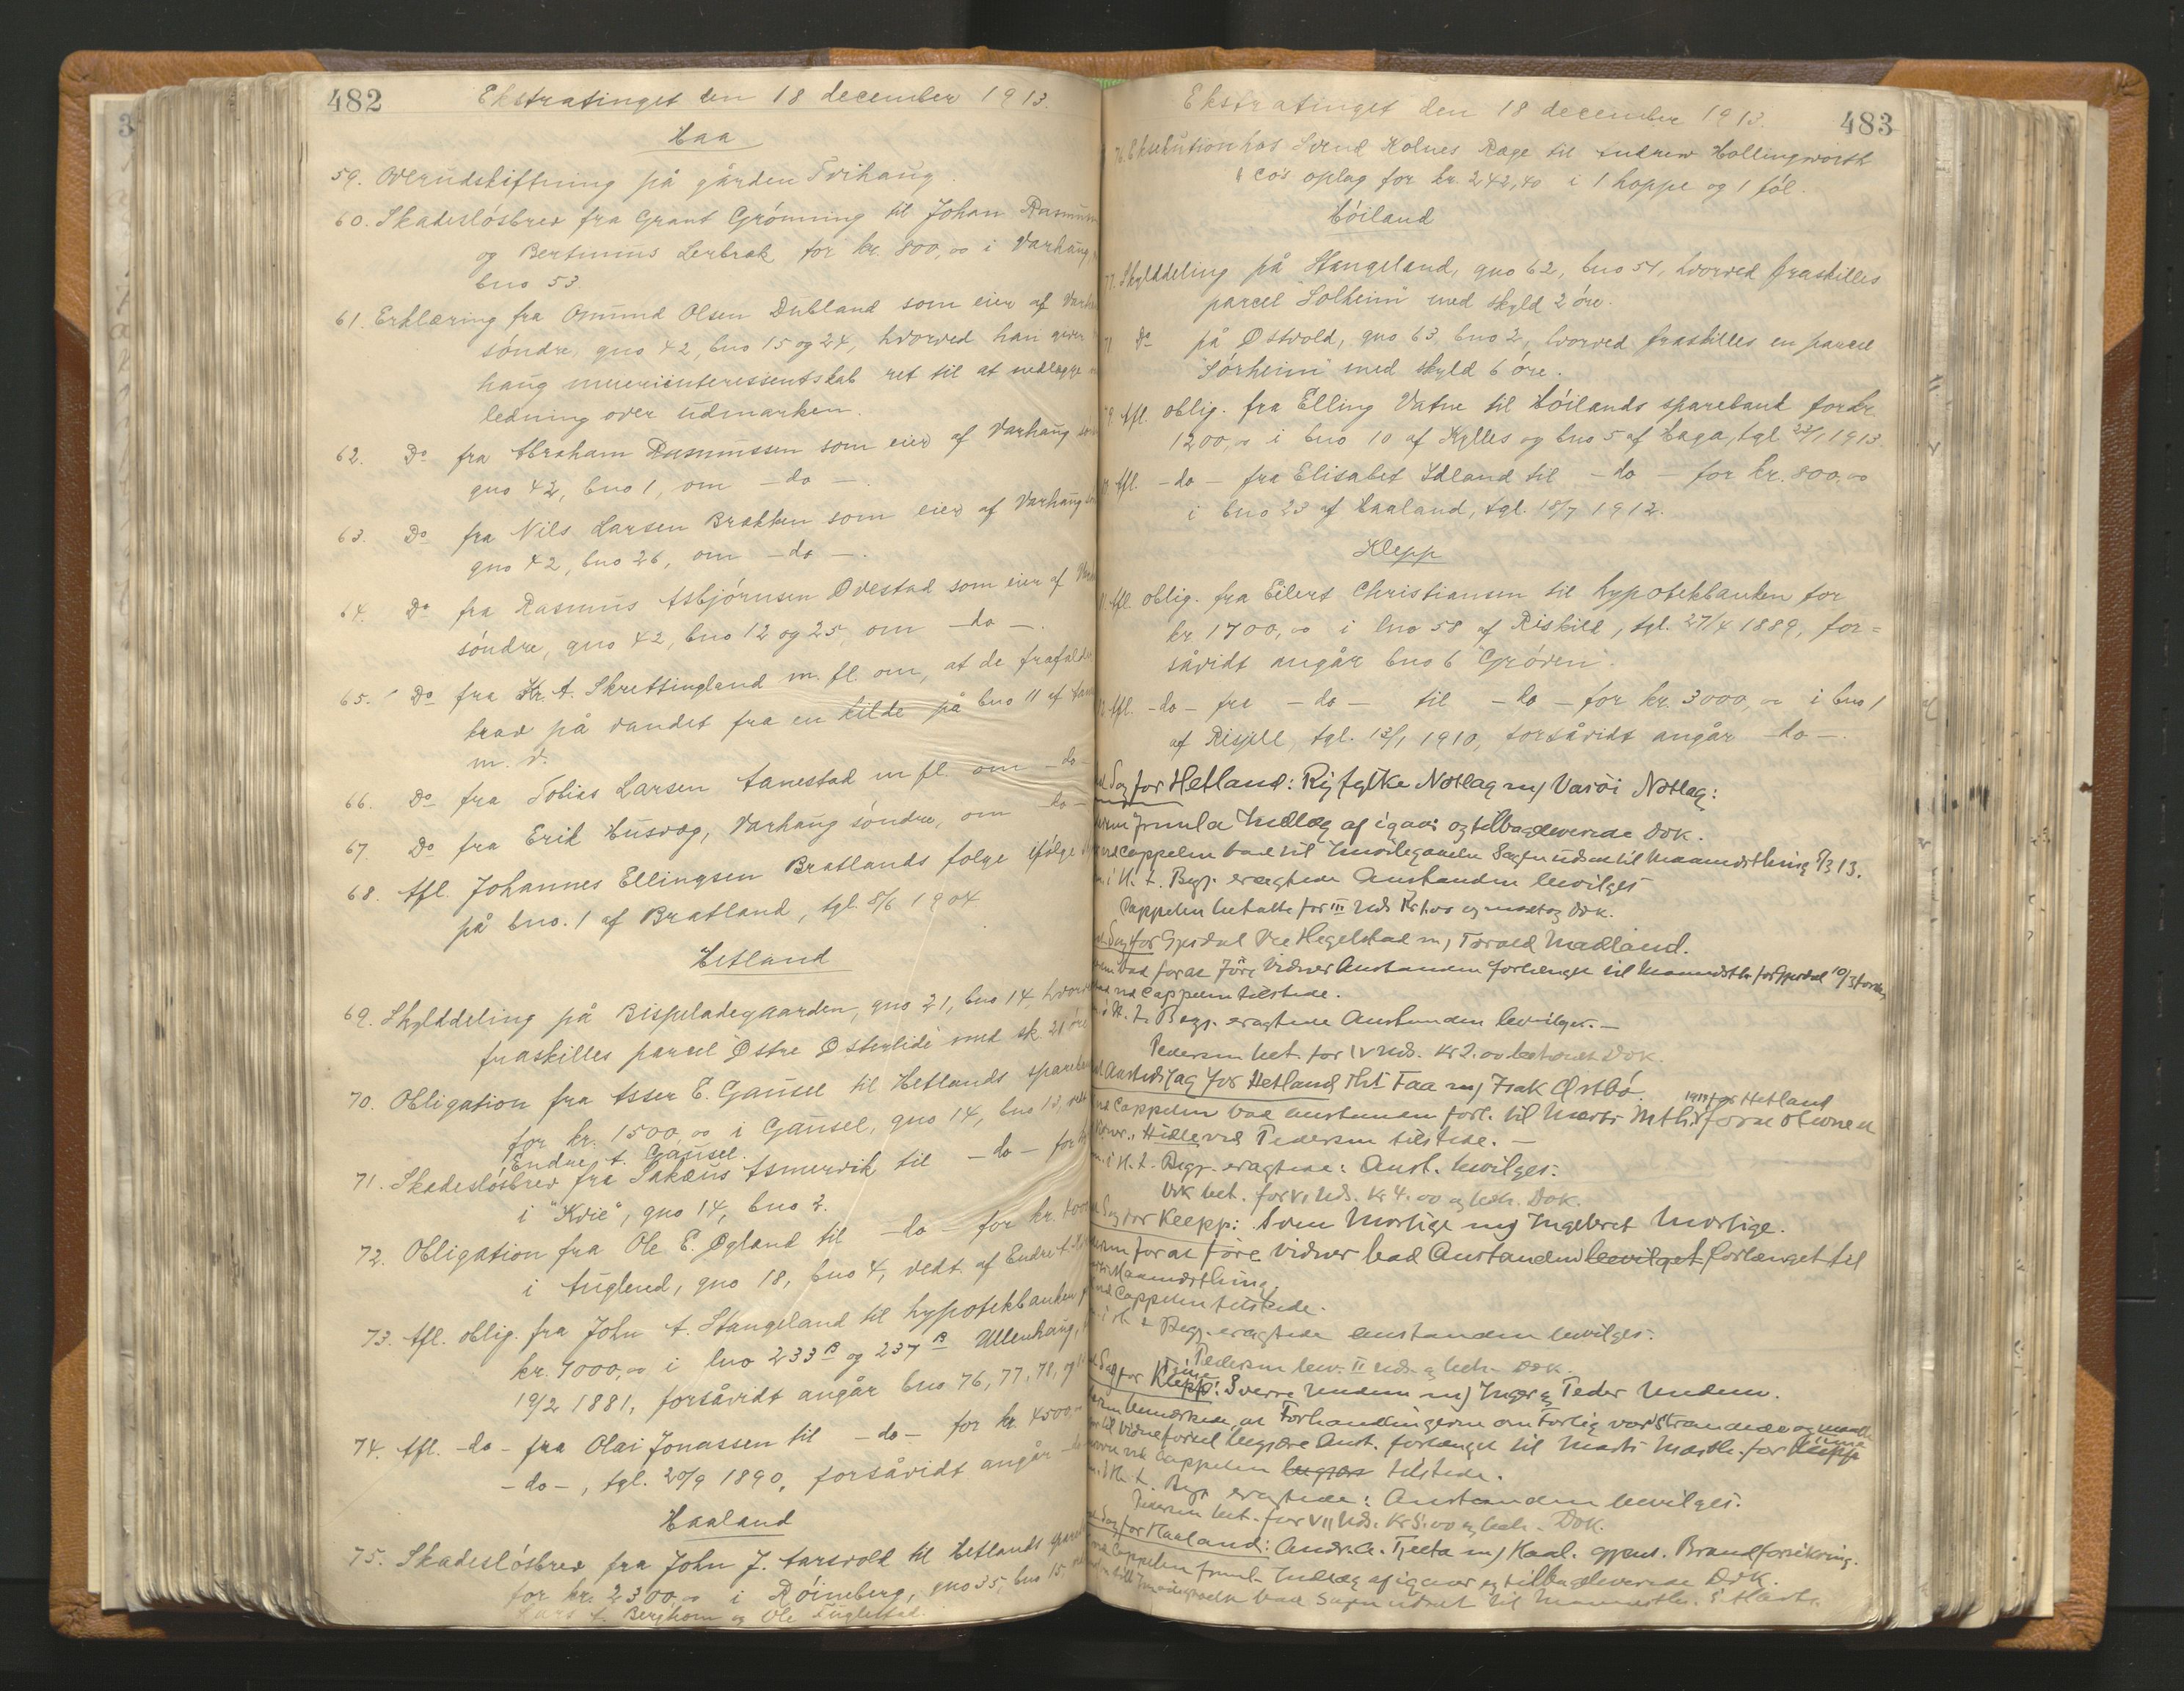 482
Ekstratinget den 18 december 1913.
Haa
59. Overudskiftning på gården Tvihaug.
60. Skadesløsbrev fra Grant Grønning til Johan Rasmussen
og Bertinius Lerbrak for kr. 800,00 i Varhaug,
bno 53
61. Erklæring fra Omund Olsen Dubland som eier af
søndre, gno 42, bno 15 og 24, hvorved han giver
haug meieriinteressentskab ret til at nedlægge
ledning over udmarken.
62. Do fra Abraham Rasmussen som eier af Varhaug
gno 42, bno 1, om -do-.
63. Do fra Nils Larsen Brakken som eier af Varhaug
gno 42, bno 26, om -do-.
64. Do fra Rasmus Asbjørnsen Ovestad som eier af
søndre, gno 42, bno 12 og 25, om -do-.
65. Do fra Kr. A. Skrettingland m. fl. om, at de frafalder
krav på vandet fra en kilde på bno 11 af
m. v.
66. Do fra Tobias Larsen Aanestad m fl. om -do-
67. Do fra Erik Husvæg, Varhaug søndre, om -do-
68. Afl. Johannes Ellingsen Bratlands følge ifølge
på bno. 1 af Bratland, tgl. 8/6 1904
Hetland
69. Skylddeling på Bispeladegaarden, gno 21, bno 14, hvorved
fraskilles parcel Østre Østerlide med sk. 21 øre
70. Obligation fra Asser E. Gausel til Hetlands spareban
for kr. 1500,00 i Gausel, gno 14, bno 13, vedt.
Endre A. Gausel.
71. Skadesløsbrev fra Sakæus Asmervik til -do- for
i "Kvie", gno 14, bno 2.
72. Obligation fra Ole E. Øgland til -do- for kr.
i Auglend, gno 18, bno 4, vedt. af Endre
73. Afl. oblig. fra John A. Stangeland til hypotekbanken
kr. 7000,00 i lno 233 B og 237 B Ullenhaug,
19/2 1881, forsåvidt angår bno 76, 77, 78, og
74. Afl. -do- fra Olai Jonassen til -do- for kr. 4500,00
-do-, tgl. 20/9 1890, forsåvidt angår
Haaland
75. Skadesløsbrev fra John J. Aarsvold til Hetlands
for kr. 2300,00 i Røineberg, gno 35, bno 15,
Lars A. Berghom og Ole Fuglestad.
Ekstratinget den 18 december 1913.
483
76. Eksekution hos Svend Holnes Rage til Andrew Hollingworth
& Co's oplag for kr. 242,40 i 1 hoppe og 1 føl.
Høiland
77. Skylddeling på Stangeland, gno 62, bno 51, hvorved fraskilles
parcel "Solheim" med skyld 2 øre.
Do på Østvold, gno 63, bno 2, hvorved fraskilles en parcel
"Sørheim" med skyld 6 øre.
79. Afl. oblig. fra Elling Vatne til Høilands sparebank for kr.
1200,00 i bno 10 af Kylles og bno 5 af Haga, tgl. 23/1 1913.
Afl. -do- fra Elisabet Idland til -do- for kr. 800,00
i bno 23 af Haaland, tgl. 18/7 1912.
Klepp
Afl. oblig. fra Eilert Christiansen til hypotekbanken for
kr 1700,00 i lno 58 af Riskild, tgl. 27/4 1889, for=
såvidt angår bno 6 "Grøden".
Afl. -do- fra -do- til -do- for kr. 3000,00 i bno 1
af Risjell, tgl. 13/1 1910, forsåvidt angår -do-.
Sag for Hetland: Ryfylke Notlag m/ Varøi Notlag:
Indlæg af igaar og tilbageleverede Dok.
Cappelen bad til Imødegaaelse Sagen udsat til Maanedsthing
i H. t. Begj. eragtede Anstanden bevilget
Cappelen betalte for III Uds. Kr 1.00 og modtog Dok.
Sag for Gjesdal Hegelstad m/ Torvald Madland.
bad for at føre Vidner Anstanden forlænget til Maanedsth. for Gjesdal 10/3
ved Cappelen tilstede.
i H. t. Begj. eragtede Anstanden bevilget.
Pedersen bet. for IV Uds. Kr 2.00 Dok.
for Hetland Faa m/ Isak Østbø.
Cappelen bad anstanden forl. til Marts Mth. 1914 for Hetland
Hille ved Pedersen tilstede.
i H. t. Begj. eragtede: Anst. bevilges:
bet. for VI Uds. Kr 4.00 og beh. Dok.
Sag for Klepp: Sven Mortige m/ Ingebret Mortige.
for at føre vidner bad Anstanden bevilget forlænget til
Maanedsthing
Cappelen tilstede.
Begj. eragtede anstanden bevilges.
Pedersen bev. II Uds. og beh. Dok.
Sag for Klepp Time: Sverre Undem m/ Inger og Peder Undem.
bemærkede at Forhandlingerne om Forlig var strandede og maatte
til Vidneførsel begjære Anst. forlænget til Marts Maedth. for Klepp Time
ved Cappelen begjær tilstede.
Begj. eragtede: Anstanden bevilges.
Pedersen bet. for VII Uds. Kr 5.00 og beh. Dok.
Sag for Haaland: Andr. A. Tjelta m/ Haal. gjens. Brandforsikring.
Cappelen Indlæg af igaar og tilbageleverede Dok.
bad Sagen udsat til Maanedsth. i Marts.